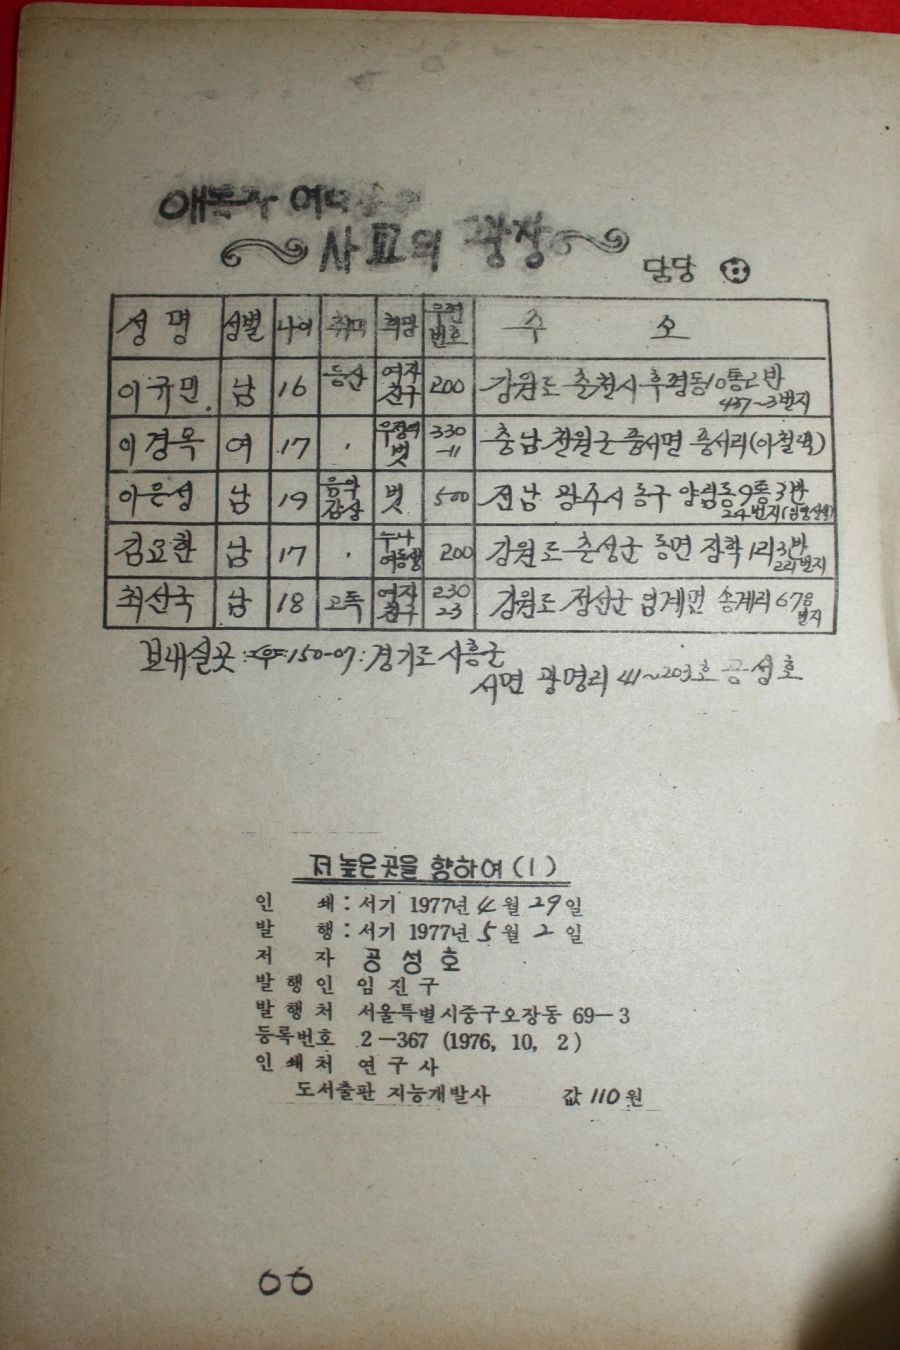 애독자 여러분의
사교의 광장
담당
성명 성별 나이 취미 희망 우편번호 주소
이규민 남 16 등산 여자친구 200 강원도 춘천시 후평동 10통2반 437~3번지
이경옥 여 17 . 우정의 벗 330-11 충남 천원군 풍서면 풍서리
이은성 남 19 음악감상 벗 500 전남 광주시 동구 양림동 9통 3반 24번지
김요한 남 17 . 누나 여동생 200 강원도 춘성군 동면 장학1리 3반 221번지
최선국 남 18 고독 여자친구 230-23 강원도 정선군 임계면 송계리 678번지
보내실곳:우:150-07:경기도 시흥군
서면 광명리 41~203호 공성호
저 높은 곳을 향하여 (1)
인 쇄 : 서기 1977년 4월 29일
발 행 : 서기 1977년 5월 2일
저 자 공성호
발행인 임진구
발행처 서울특별시중구오장동 69-3
등록번호 2-367 (1976, 10, 2)
인쇄처 연구사
도서출판 지능개발사 값 110원
66